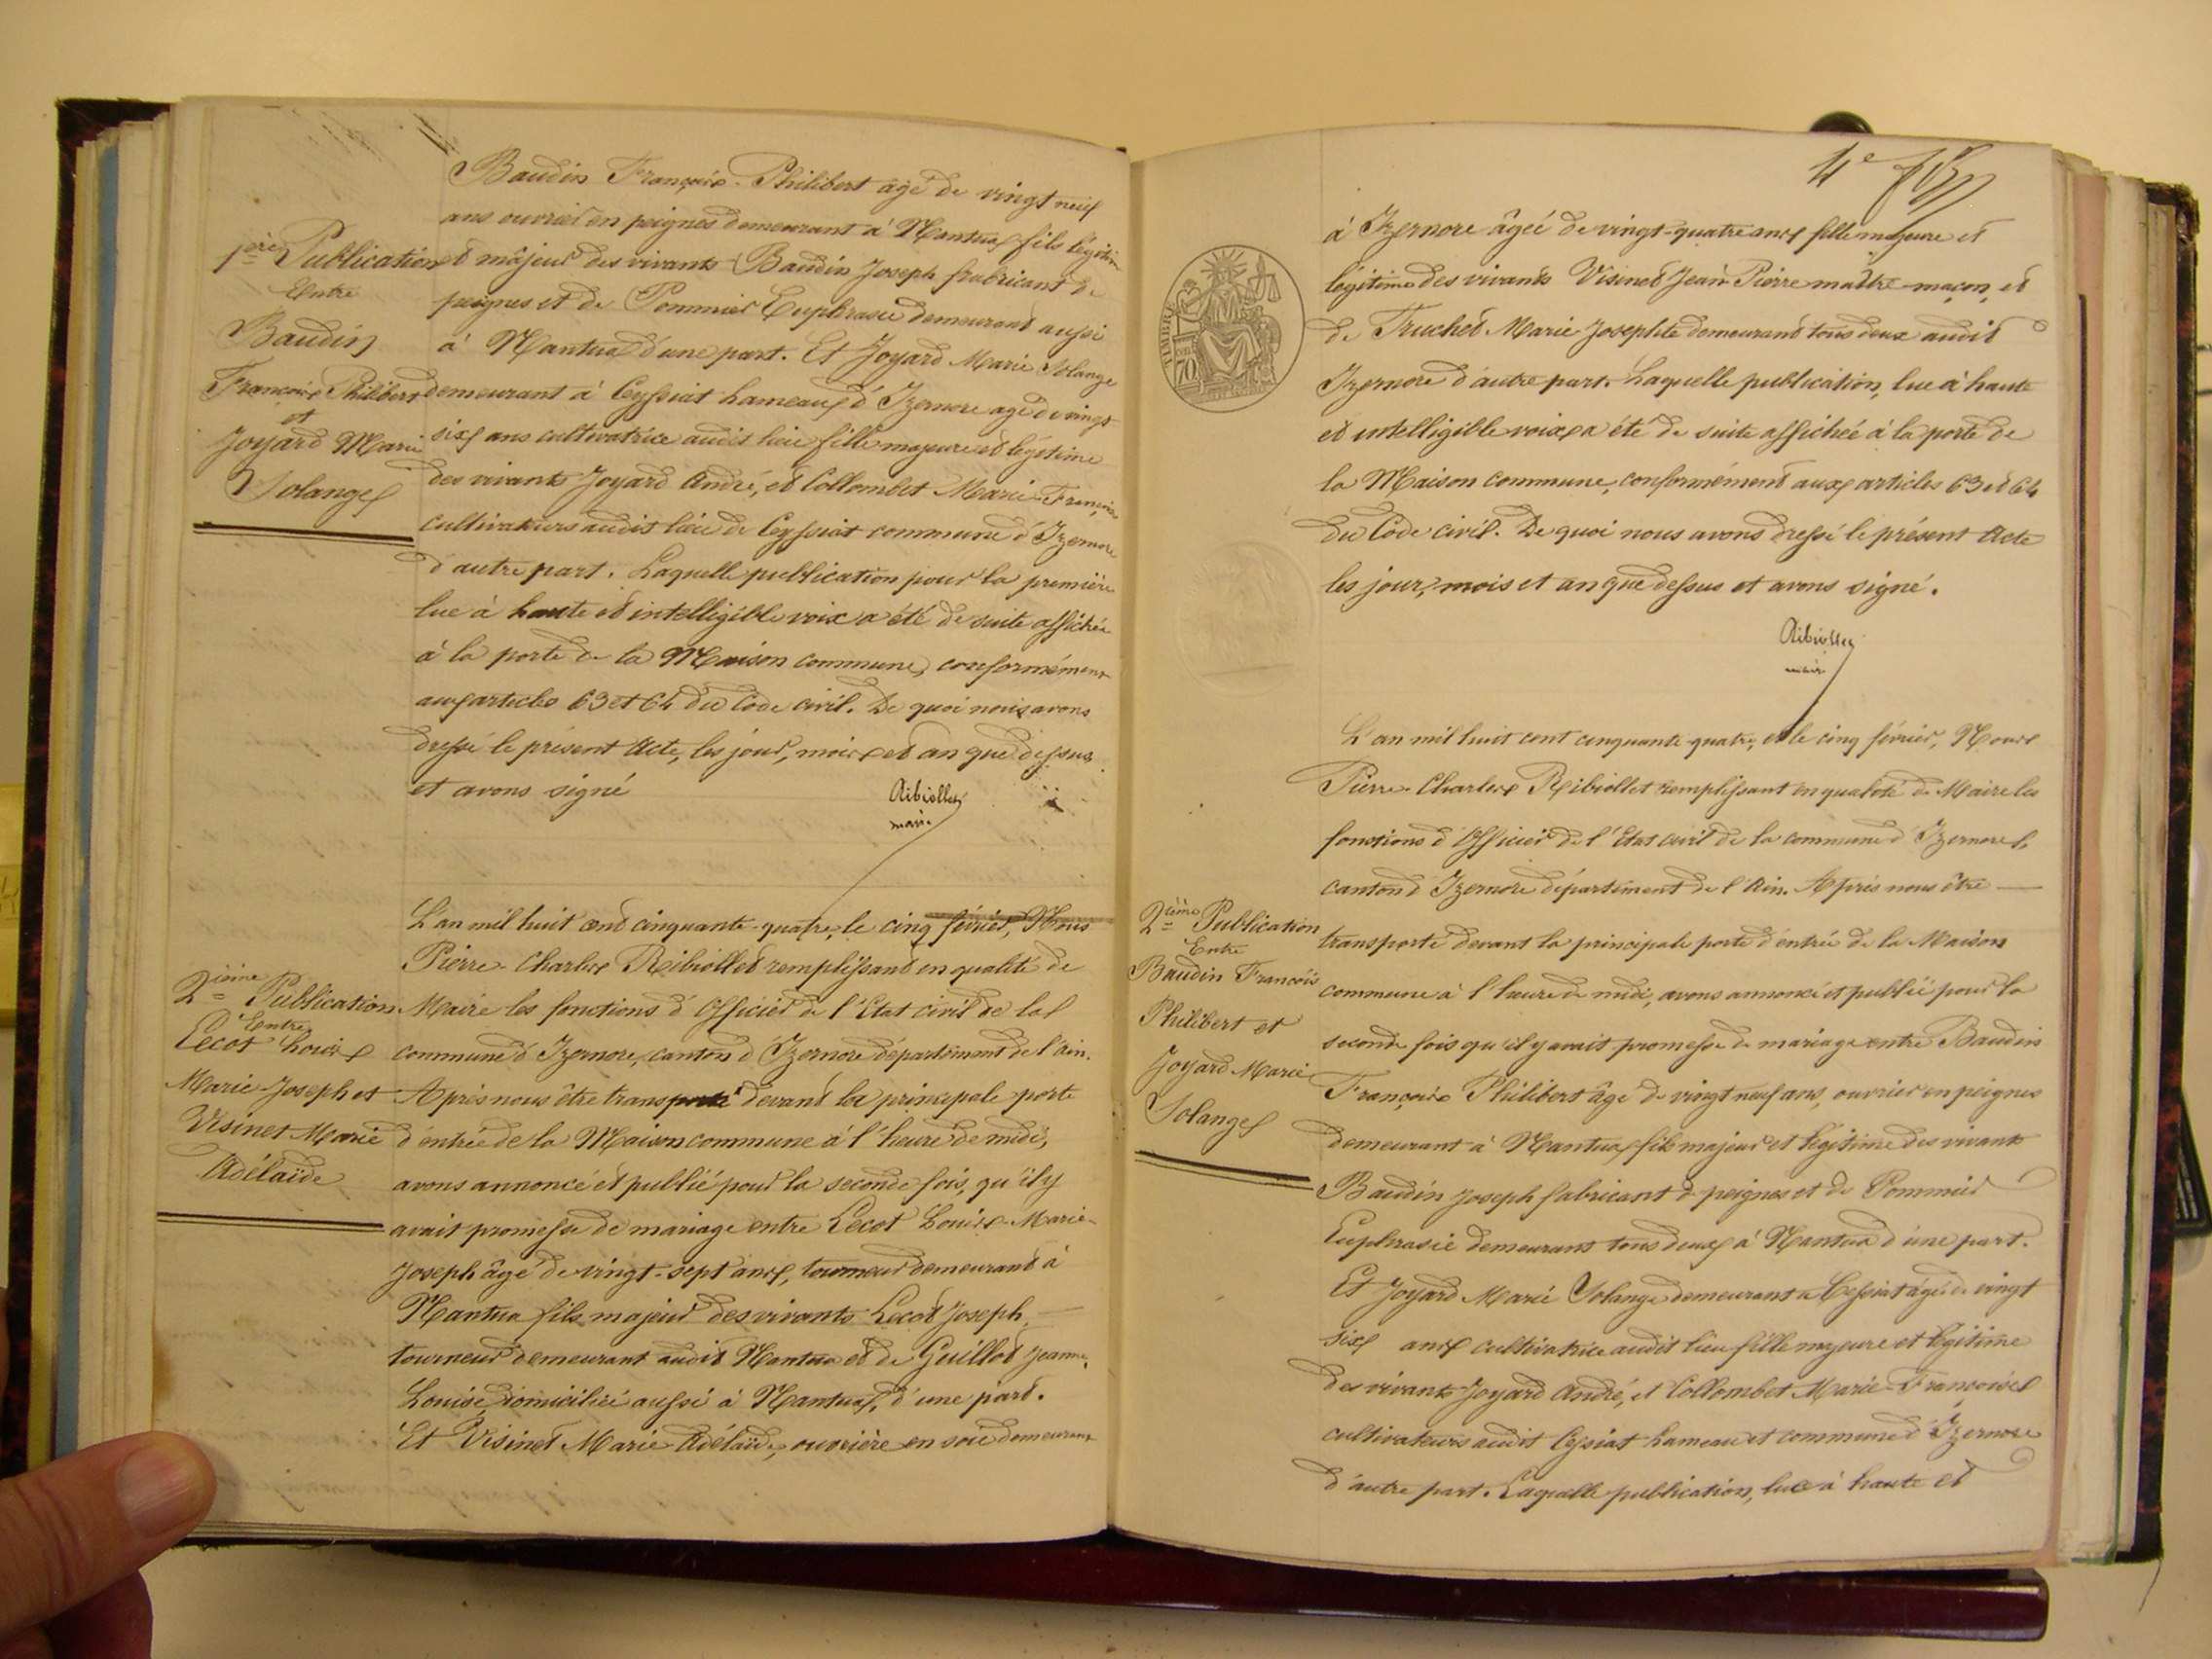 Baudin François-Philibert âgé de vingt neuf
ans ouvrier en peignes demeurant à Nantua fils légitime
1ère Publication
Entre
Baudin
François Philibert
et
Joyard Marie
Solange
et majeur des vivants Baudin Joseph fabricant de
peignes et de Pommier Euphrasie demeurant aussi
à Nantua d'une part. Et Joyard Marie Solange
demeurant à Ceyssiat hameau d'Izernore agé de vingt
six ans cultivatrice audit lieu fille majeure et légitime
des vivants Joyard André, et Collombet Marie-Françoise
cultivateurs audit lieu de Ceyssiat commune d'Izernore
d'autre part. Laquelle publication pour la première
lue à haute et intelligible voix a été de suite affichée
à la porte de la Maison commune, conformément
aux articles 63 et 64 du Code civil. De quoi nous avons
dressé le présent Acte, les jour, mois et an que dessus
et avons signé
Ribiollet
maire
L'an mil huit cent cinquante-quatre, le cinq février, Nous
Pierre-Charles Ribiollet remplissant en qualité de
2ième Publication
Entre
Lecot Louis
Marie-Joseph et
Visinet Marie
Adélaïde
Maire les fonctions d'Officier de l'Etat civil de la
commune d'Izernore, canton d'Izernore département de l'Ain.
Après nous être transporté devant la principale porte
d'entrée de la Maison commune à l'heure de midi,
avons annoncé et publié pour la seconde fois, qu'il y
avait promesse de mariage entre Lecot Louis-Marie-
Joseph âgé de vingt-sept ans, tourneur demeurant à
Nantua fils majeur des vivants Lecot Joseph
tourneur demeurant audit Nantua et de Guillot Jeanne
Louise domiciliée aussi à Nantua, d'une part.
Et Visinet Marie Adélaïde, ouvrière en soie demeurant
4e
à Izernore âgée de vingt-quatre ans fille majeure et
légitime des vivants Visinet Jean-Pierre maître-maçon, et
de Truchet Marie Josephte demeurant tous deux audit
Izernore d'autre part. Laquelle publication, lue à haute
et intelligible voix a été de suite affichée à la porte de
la Maison commune, conformément aux articles 63 et 64
du Code civil. De quoi nous avons dressé le présent Acte
les jour, mois et an que dessus et avons signé.
TIMBRE
70
Ribiollet
maire
L'an mil huit cent cinquante-quatre, et le cinq février, Nous
Pierre-Charles Ribiollet remplissant en qualité de Maire les
fonctions d'Officier de l'Etat civil de la commune d'Izernore,
canton d'Izernore département de l'Ain. Après nous être
2ième Publication
Entre
Baudin François
Philibert et
Joyard Marie
Solange
transporté devant la principale porte d'entrée de la Maison
commune à l'heure de midi, avons annoncé et publié pour la
seconde fois qu'il y avait promesse de mariage entre Baudin
François Philibert âgé de vingt neuf ans, ouvrier en peignes
demeurant à Nantua fils majeur et légitime des vivants
Baudin Joseph fabricant de peignes et de Pommier
Euphrasie demeurant tous deux à Nantua d'une part.
Et Joyard Marie Solange demeurant à Cessiat âgée de vingt
six ans cultivatrice audit lieu fille majeure et légitime
des vivants Joyard André, et Collombet Marie-Françoise
cultivateurs audit Ceysiat hameau et commune d'Izernore
d'autre part. Laquelle publication, lue à haute et